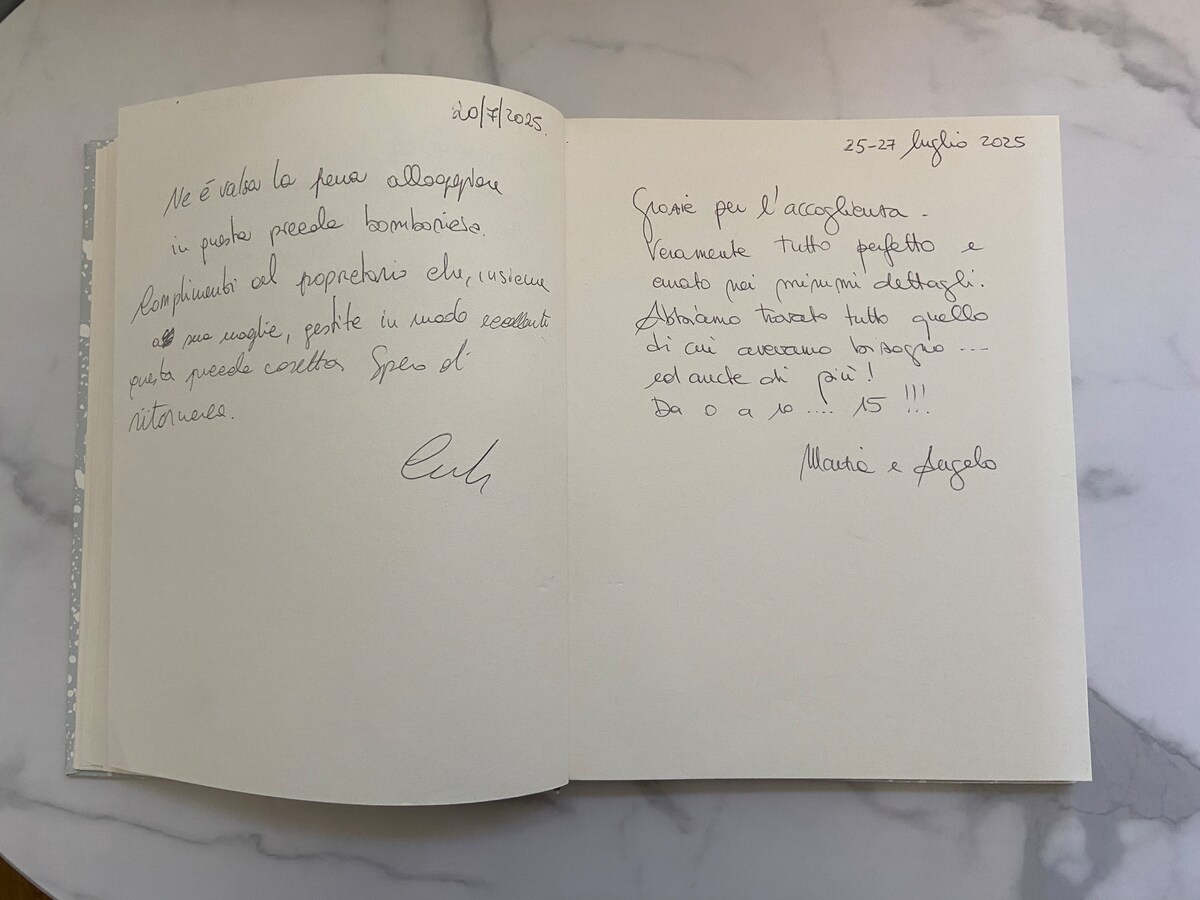 20/7/2025.
Ne é valsa la pena alloggiare
in questa piccola bomboniera.
Complimenti al propretario che, insieme
a sua moglie, gestite in modo eccellente
questa piccola casetta Spero di
ritornare.
25-27 luglio 2025
Grazie per l'accoglienza -
Veramente tutto perfetto e
curato nei minimi dettagli.
Abbiamo trovato tutto quello
di cui avevamo bisogno ...
ed anche di più!
Da 0 a 10 .... 15 !!!
Maria e Angelo